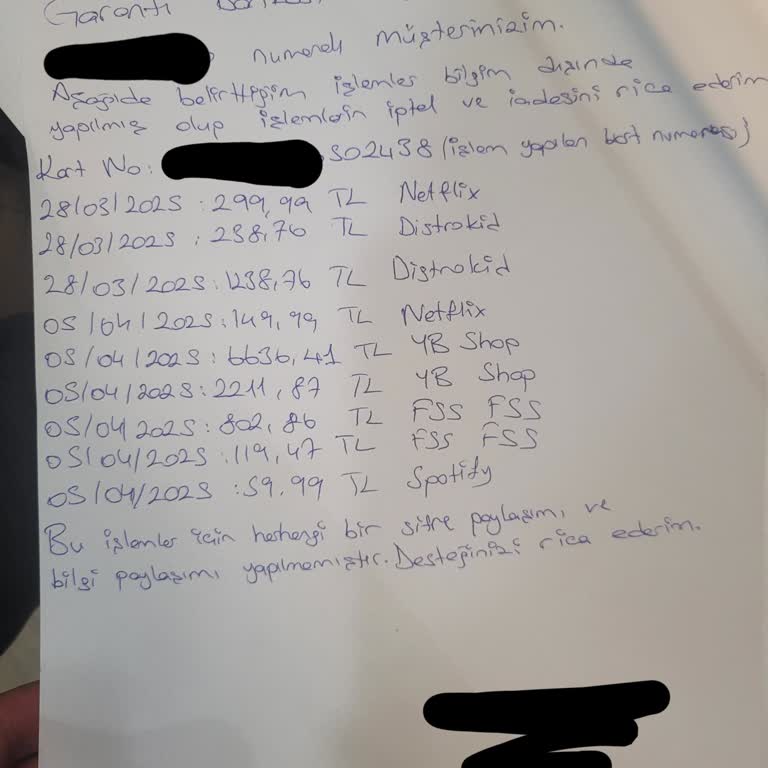 Garanti
numaralı müşterinizim.
Aşağıda belirttiğim işlemler bilgim dışında
yapılmış olup işlemlerin iptal ve iadesini rica ederim
Kart No: 502438 (işlem yapılan kart numarası)
28/03/2025 : 299,99 TL Netflix
28/03/2025 : 238,76 TL Distrokid
28/03/2025 : 1238,76 TL Distrokid
05/04/2025 : 149,99 TL Netflix
05/04/2025 : 6636,41 TL YB Shop
05/04/2025 : 2211,87 TL YB Shop
05/04/2025 : 802,86 TL FSS FSS
05/04/2025 : 119,47 TL FSS FSS
05/04/2025 : 59.99 TL Spotify
Bu işlemler için herhangi bir şifre paylaşımı ve
bilgi paylaşımı yapılmamıştır. Desteğinizi rica ederim.